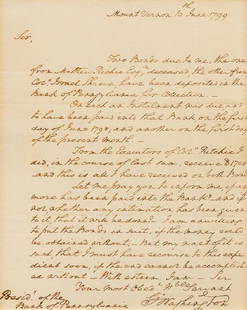 Mount Vernon 10th June 1799
Sir,
Two Bonds due to me, the one
from Matthew Ritchie Esqr. deceased, the other from
Colo. Israel Shreve, have been deposited in the
Bank of Pennsylvania for Collection
On each an Instalment was due and to
have been paid into that Bank on the first
day of June 1798, and another on the first day
of the present month.
From the Executors of Mr. Ritchie I
did, in the course of last mo., receive $
and this is all I have received on both Bonds
Let me pray you to inform me if any
more has been paid into the Bank, and if
not, whether any intention has been given
to it, that it will be done. I am unwilling
to put the Bonds in suit, if the money could
be obtained without, but my want of it is
such, that I must have recourse to this expe-
dient soon, if the end cannot be accomplish-
ed without. With esteem, I am Sir
Your most Obedt. Hble Servant
Go: Washington
Presidt. of the
Bank of Pennsylvania